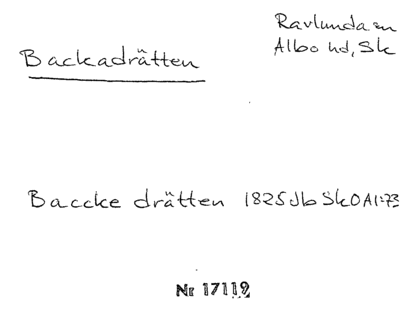 Backadrätten
Ravlunda sn
Albo hd, Sk
Baccke drätten 1825 Jb Sk O A1:73
Nr 17119